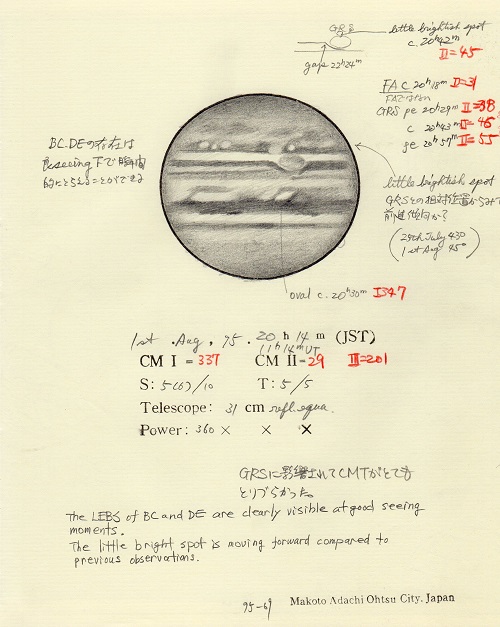 GRS
little brightish spot
c. 20h42m
II=45
gap 22h24m
FAC 20h18m II=31
GRS pe 20h29m II=38
c 20h43m II=46
fe 20h57m II=55
BC.DEの存在は
良seeing下で瞬間
的にとらえることができる
little brightish spot
GRSとの相対位置からみて
前進傾向か?
(29th July 43°
1st Aug 45°)
oval c. 20h30m I347
1st . Aug, 95. 20 h 14 m (JST)
11h14mUT
CM I = 337 CM II=29 III=201
S: 5(6)/10 T: 5/5
Telescope: 31 cm refl. equa.
Power: 360 × × ×
GRSに影響されてCMTがとても
とりづらかった。
The LEBS of BC and DE are clearly visible at good seeing
moments.
The little bright spot is moving forward compared to
previous observations.
95-69 Makoto Adachi Ohtsu City, Japan